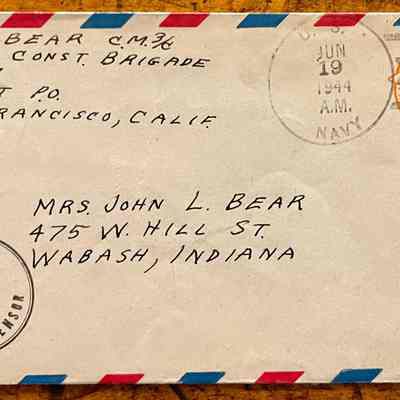 BEAR C.M.3/C
CONST. BRIGADE
T P.O.
FRANCISCO, CALIF.
U. S.
JUN
19
1944
A.M.
NAVY
MRS. JOHN L. BEAR
475 W. HILL ST.
WABASH, INDIANA
ENSOR